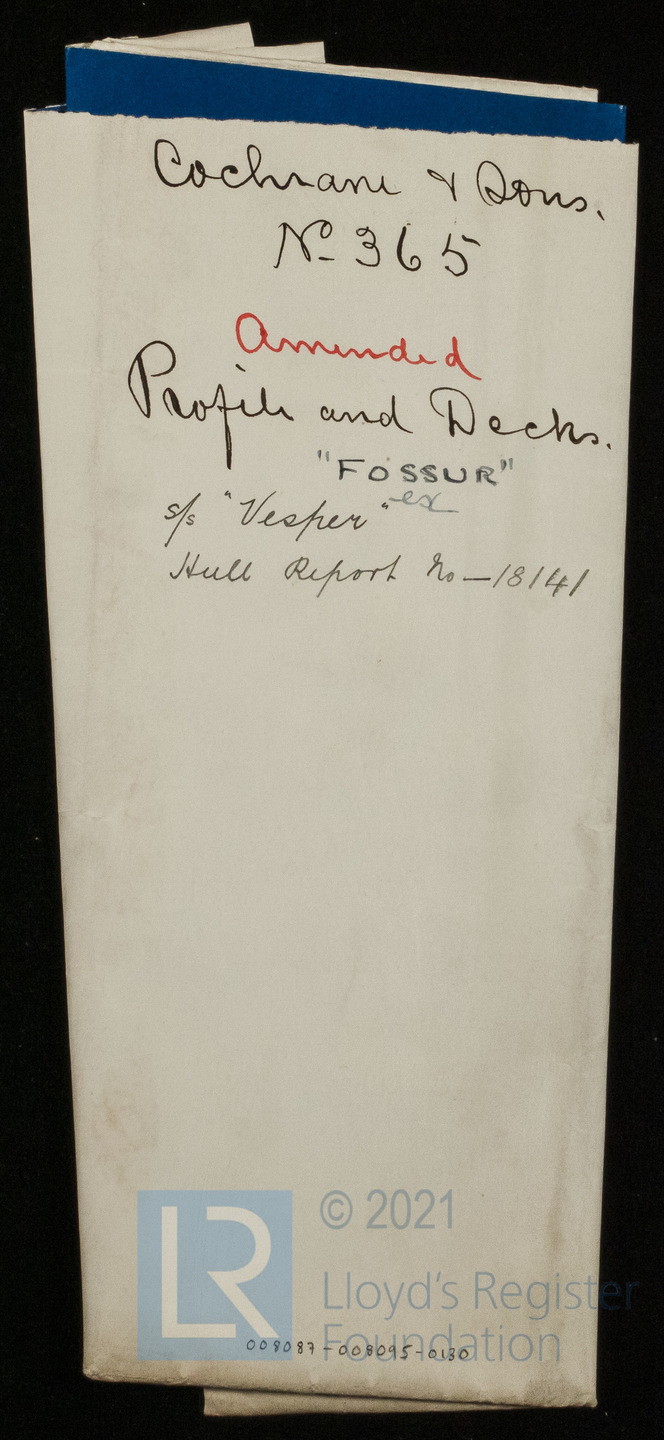 Cochrane & Sons.
No 365
Amended
Profile and Decks.
"FOSSUR"
s/s "Vesper" ex
Hull Report No — 18141
LR
© 2021
Lloyd's Register
Foundation
008087-008095-0130